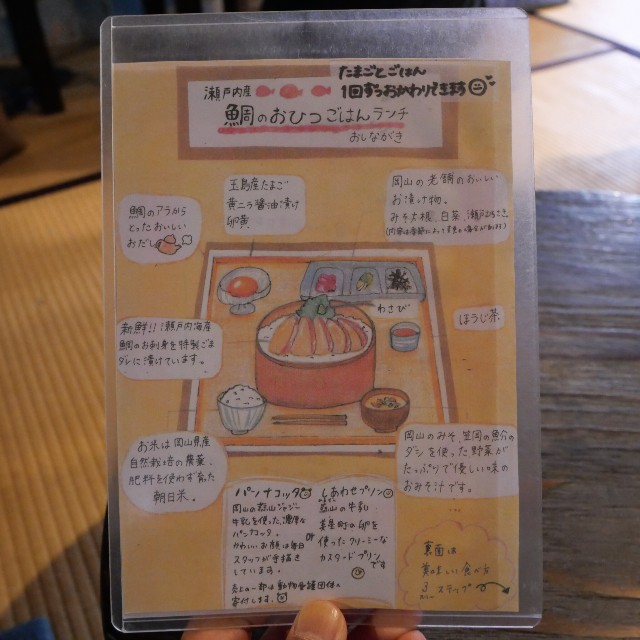 瀬戸内産
たまごとごはん
1回ずつおかわりできます
鯛のおひつごはんランチ
おしながき
玉島産たまご
黄ニラ醤油漬け
卵黄
岡山の老舗のおいしい
お漬け物。
みそ大根、白菜、瀬戸むらさき
鯛のアラから
とったおいしい
おだし
わさび
ほうじ茶
新鮮!!瀬戸内海産
鯛のお刺身を特製ごま
ダレに漬けています。
お米は岡山県産
自然栽培の農薬、
肥料を使わず育った
朝日米。
岡山のみそ、笠岡の魚介の
ダシを使った野菜が
たっぷりで優しい味の
おみそ汁です。
パンナコッタ
岡山の蒜山ジャージー
牛乳を使った濃厚な
パンナコッタ。
かわいいお顔は毎日
スタッフが手描き
しています。
売上の一部は動物愛護団体へ
寄付します。
or
しあわせプリン
蒜山の牛乳
美星町の卵を
使ったクリーミーな
カスタードプリン
です
裏面は
美味しい食べ方
3ステップ